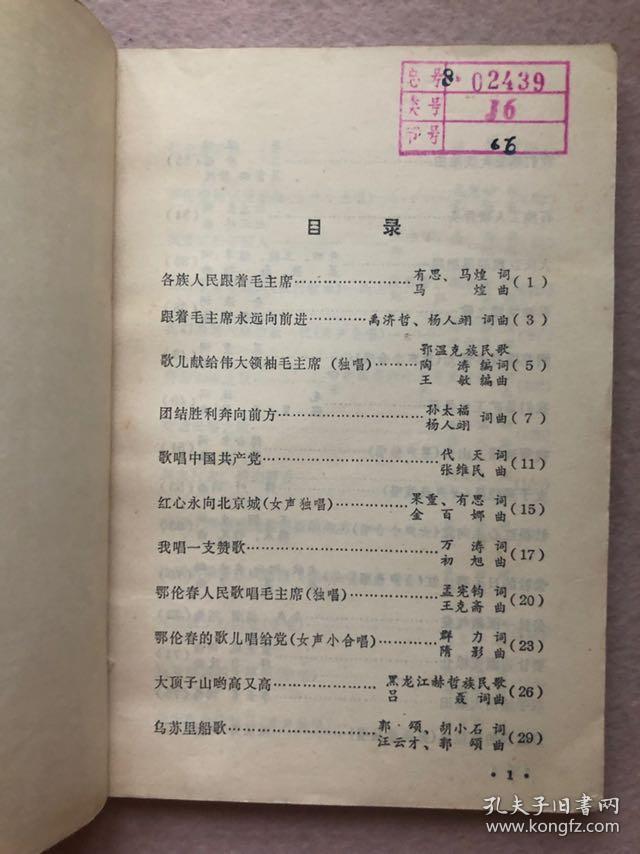 总号 8. 02439
类号 16
册号 69
目 录
各族人民跟着毛主席……………………有思、马煌 词 马 煌 曲(1)
跟着毛主席永远向前进………禹济哲、杨人翊 词曲(3)
歌儿献给伟大领袖毛主席(独唱)……鄂温克族民歌 陶 涛 编词 王 敏 编曲(5)
团结胜利奔向前方………………………孙太福 杨人翊 词曲(7)
歌唱中国共产党…………………………代 天 词 张维民 曲(11)
红心永向北京城(女声独唱)……………果重、有思 词 金 百 娜 曲(15)
我唱一支赞歌……………………………万 涛 词 初 旭 曲(17)
鄂伦春人民歌唱毛主席(独唱)…………孟宪钧 词 王克斋 曲(20)
鄂伦春的歌儿唱给党(女声小合唱)……群 力 词 隋 影 曲(23)
大顶子山哟高又高………………黑龙江赫哲族民歌 吕 聂 词曲(26)
乌苏里船歌……………………郭 颂、胡小石 词 汪云才、郭 颂 曲(29)
• 1 •
孔夫子旧书网
www.kongfz.com